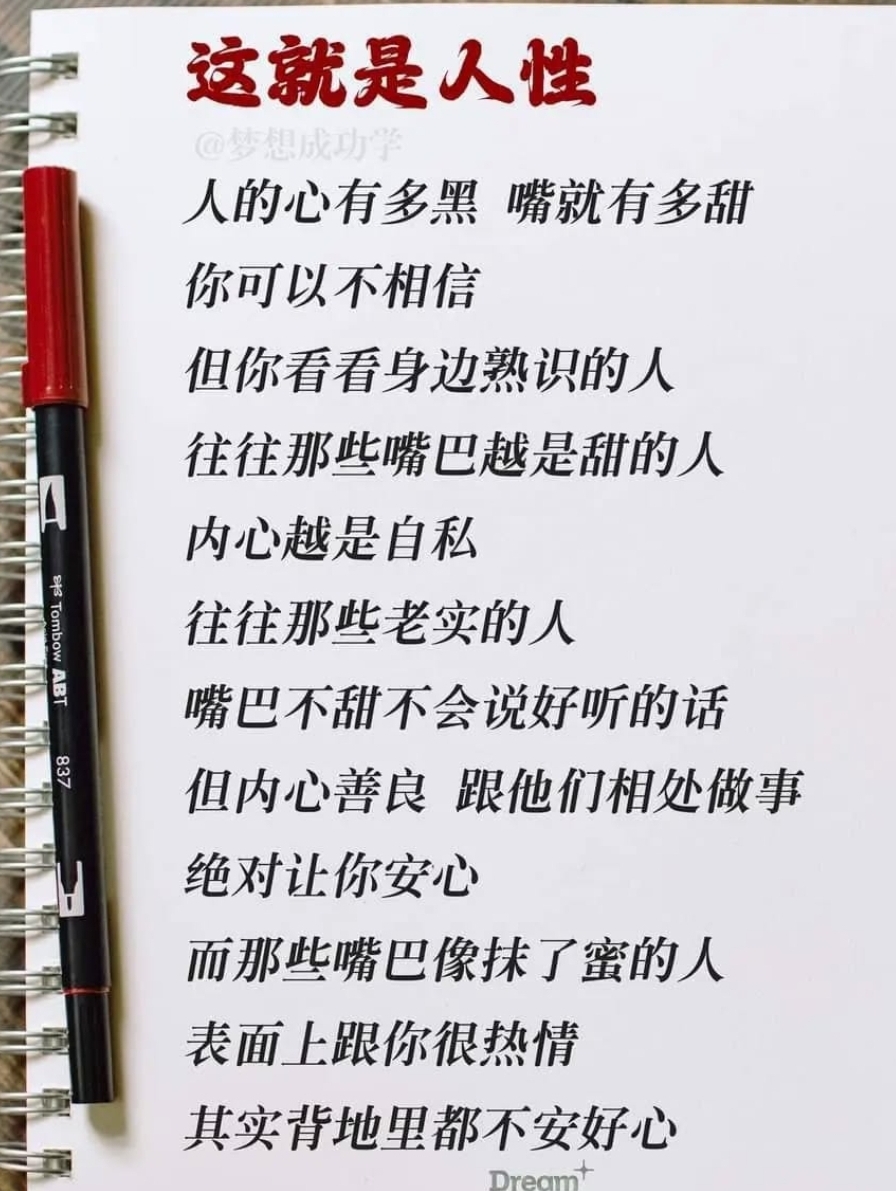 这就是人性
@梦想成功学
人的心有多黑 嘴就有多甜
你可以不相信
但你看看身边熟识的人
往往那些嘴巴越是甜的人
内心越是自私
往往那些老实的人
嘴巴不甜不会说好听的话
但内心善良 跟他们相处做事
绝对让你安心
而那些嘴巴像抹了蜜的人
表面上跟你很热情
其实背地里都不安好心
Tombow ABT 837
Dream